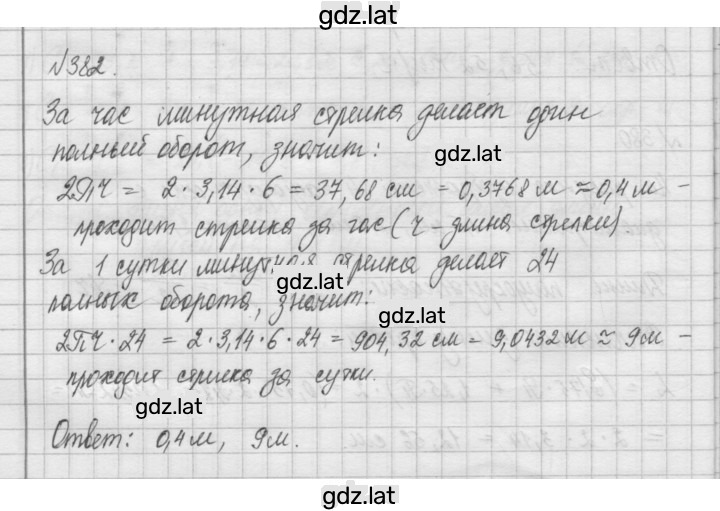 gdz.lat
№382.
За час минутная стрелка делает один
полный оборот, значит:
gdz.lat
2πr = 2·3,14·6 = 37,68 см = 0,3768 м ≈ 0,4 м –
проходит стрелка за час (r – длина стрелки).
За 1 сутки минутная стрелка делает 24
gdz.lat
полных оборота, значит:
gdz.lat
2πr·24 = 2·3,14·6·24 = 904,32 см = 9,0432 м ≈ 9 м –
проходит стрелка за сутки.
gdz.lat
Ответ: 0,4 м, 9 м.
gdz.lat